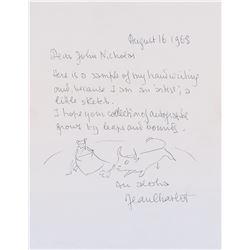 August 16 1968
Dear John Nicholas
Here is a sample of my handwriting
and, because I am an artist, a
little sketch.
I hope your collection of autographs
grows by leaps and bounds.
An aloha
Jean Charlot